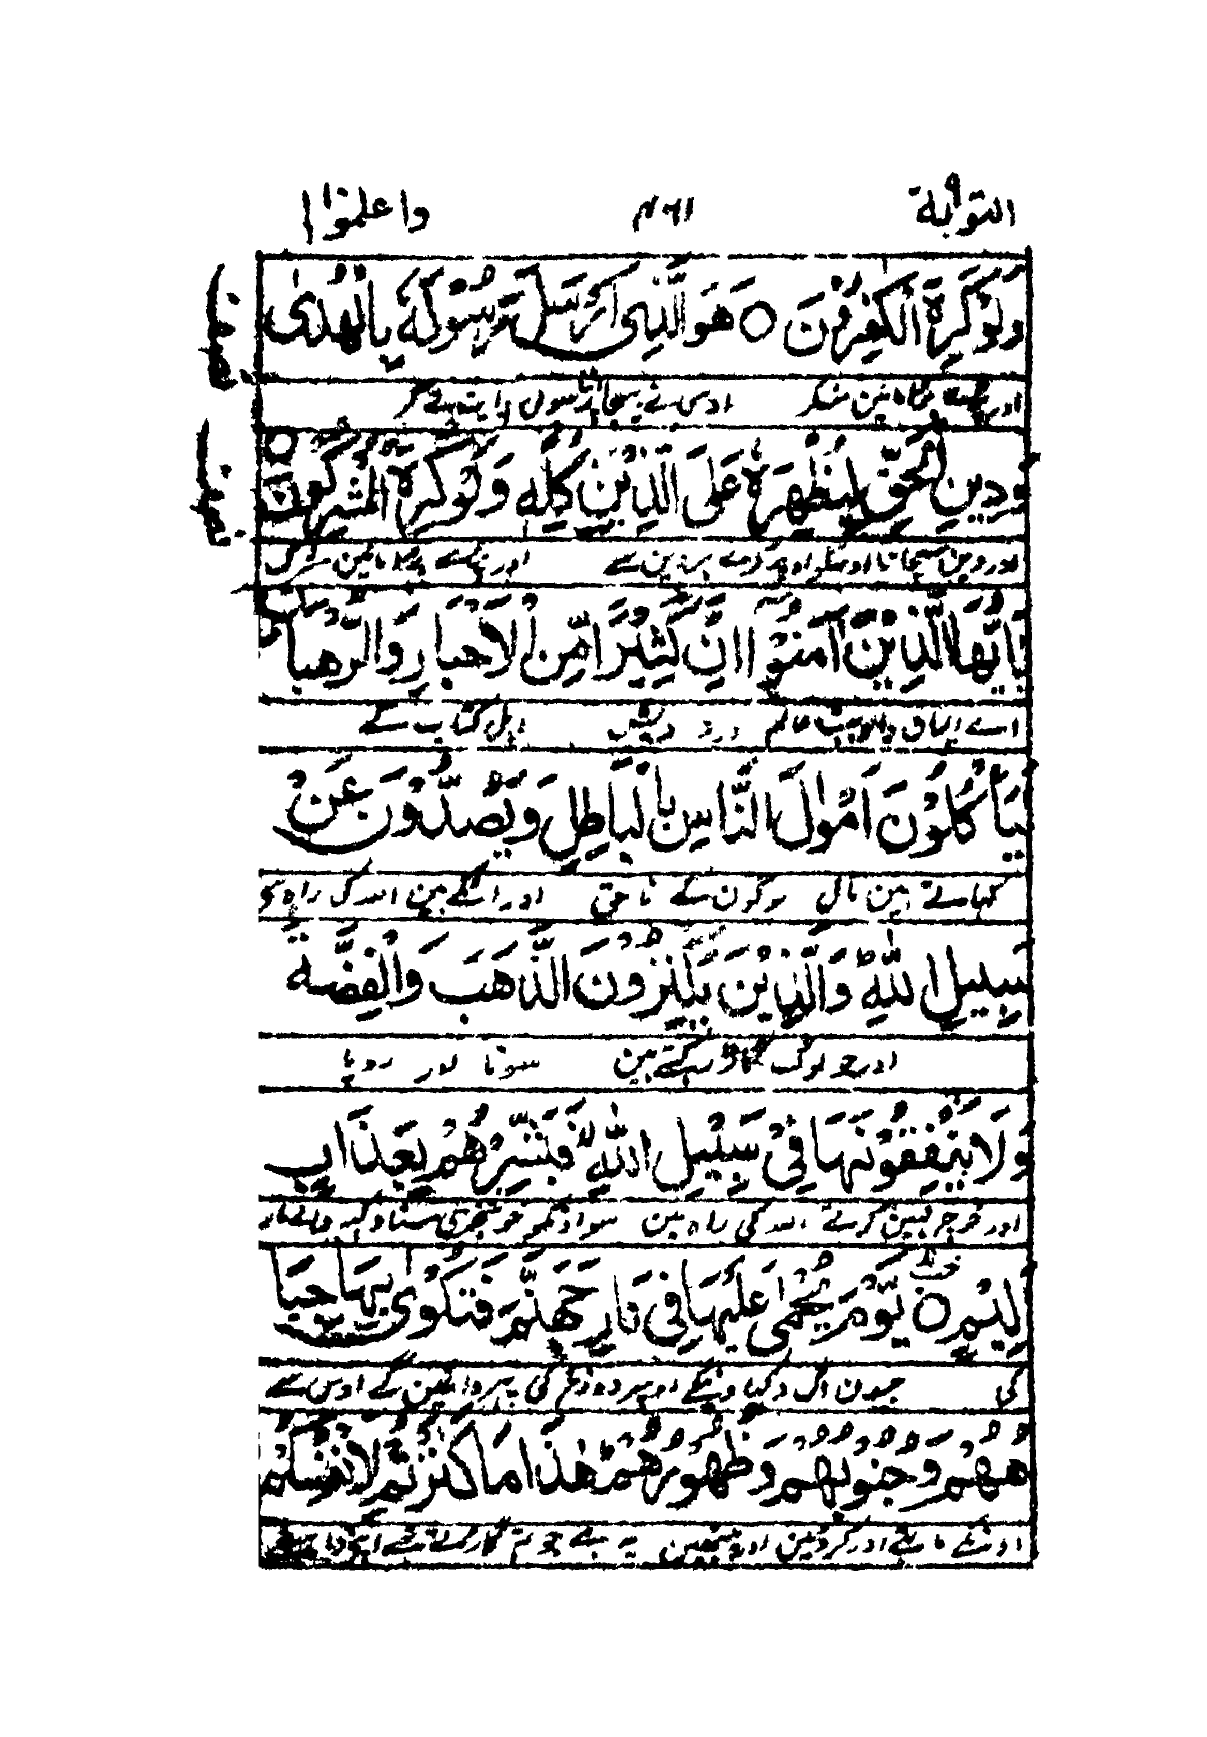 التوبة ٩ ٢٦١ واعلموا ١٠
وَلَوْ كَرِهَ الْكٰفِرُوْنَ ۝ هُوَ الَّذِىْ اَرْسَلَ رَسُوْلَهٗ بِالْهُدٰى
اور منکر
وَدِيْنِ الْحَقِّ لِيُظْهِرَهٗ عَلَى الدِّيْنِ كُلِّهٖ وَلَوْ كَرِهَ الْمُشْرِكُوْنَ ۝
اور دین سچا تا اوسکو اوپر کرے ہر دین سے
يٰۤاَيُّهَا الَّذِيْنَ اٰمَنُوْۤا اِنَّ كَثِيْرًا مِّنَ الْاَحْبَارِ وَالرُّهْبَانِ
اے ایمان والو بہت عالم اور درویش اہل کتاب کے
لَيَاْكُلُوْنَ اَمْوَالَ النَّاسِ بِالْبَاطِلِ وَيَصُدُّوْنَ عَنْ
کہاتے ہین مال لوگون کے ناحق اور اٹکتے ہین اللہ کی راہ سے
سَبِيْلِ اللّٰهِ وَالَّذِيْنَ يَكْنِزُوْنَ الذَّهَبَ وَالْفِضَّةَ
اور جو لوگ گاڑ رکہتے ہین سونا اور روپا
وَلَا يُنْفِقُوْنَهَا فِىْ سَبِيْلِ اللّٰهِ فَبَشِّرْهُمْ بِعَذَابٍ
اور خرچ نہین کرتے اللہ کی راہ مین سو اونکو خوشخبری سنا دکہہ والے مار
اَلِيْمٍ ۝ يَوْمَ يُحْمٰى عَلَيْهَا فِىْ نَارِ جَهَنَّمَ فَتُكْوٰى بِهَا جِبَا
کی جسدن آگ دہکاوینگے اوسپر دوزخ کی پہر داغین گے اوس سے
هُهُمْ وَجُنُوْبُهُمْ وَظُهُوْرُهُمْ هٰذَا مَا كَنَزْتُمْ لِاَنْفُسِكُمْ
اونکے ماتہے اور کروٹین اور پیٹہین یہ ہے جو تم گاڑتے تہے